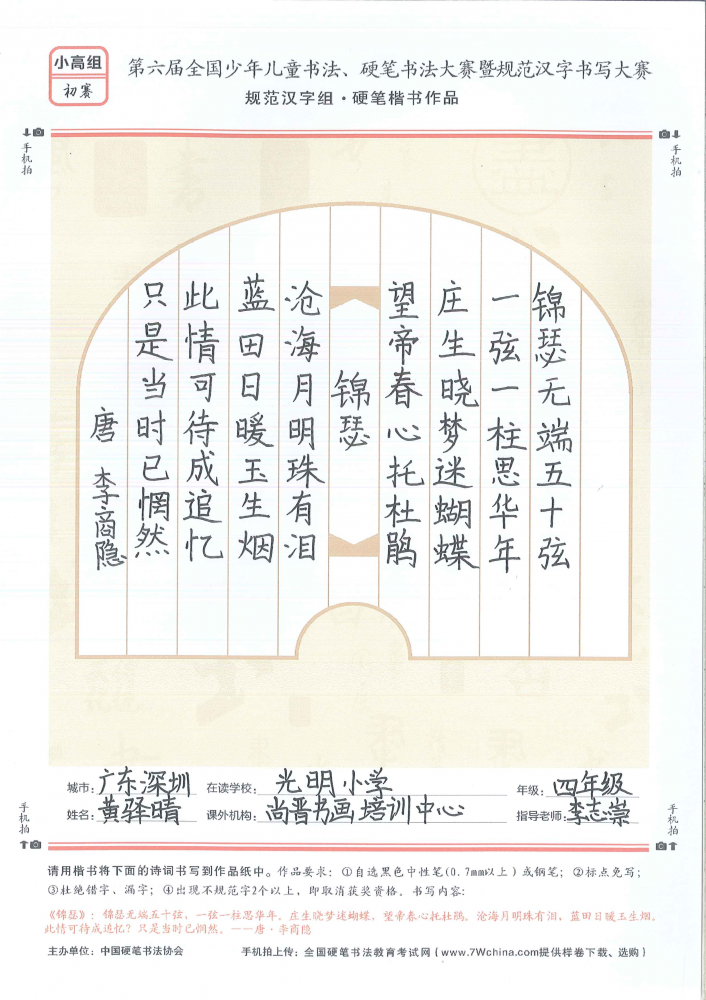 小高组
初赛
第六届全国少年儿童书法、硬笔书法大赛暨规范汉字书写大赛
规范汉字组·硬笔楷书作品
手机拍
手机拍
锦瑟无端五十弦
一弦一柱思华年
庄生晓梦迷蝴蝶
望帝春心托杜鹃
锦瑟
沧海月明珠有泪
蓝田日暖玉生烟
此情可待成追忆
只是当时已惘然
唐 李商隐
城市：广东深圳 在读学校：光明小学 年级：四年级
姓名：黄驿晴 课外机构：尚晋书画培训中心 指导老师：李志崇
手机拍
手机拍
请用楷书将下面的诗词书写到作品纸中。作品要求：①自选黑色中性笔(0.7mm以上)或钢笔；②标点免写；
③杜绝错字、漏字；④出现不规范字2个以上，即取消获奖资格。书写内容：
《锦瑟》：锦瑟无端五十弦，一弦一柱思华年。庄生晓梦迷蝴蝶，望帝春心托杜鹃。沧海月明珠有泪，蓝田日暖玉生烟。
此情可待成追忆？只是当时已惘然。——唐·李商隐
主办单位：中国硬笔书法协会 手机拍上传：全国硬笔书法教育考试网（www.7Wchina.com提供样卷下载、选购）